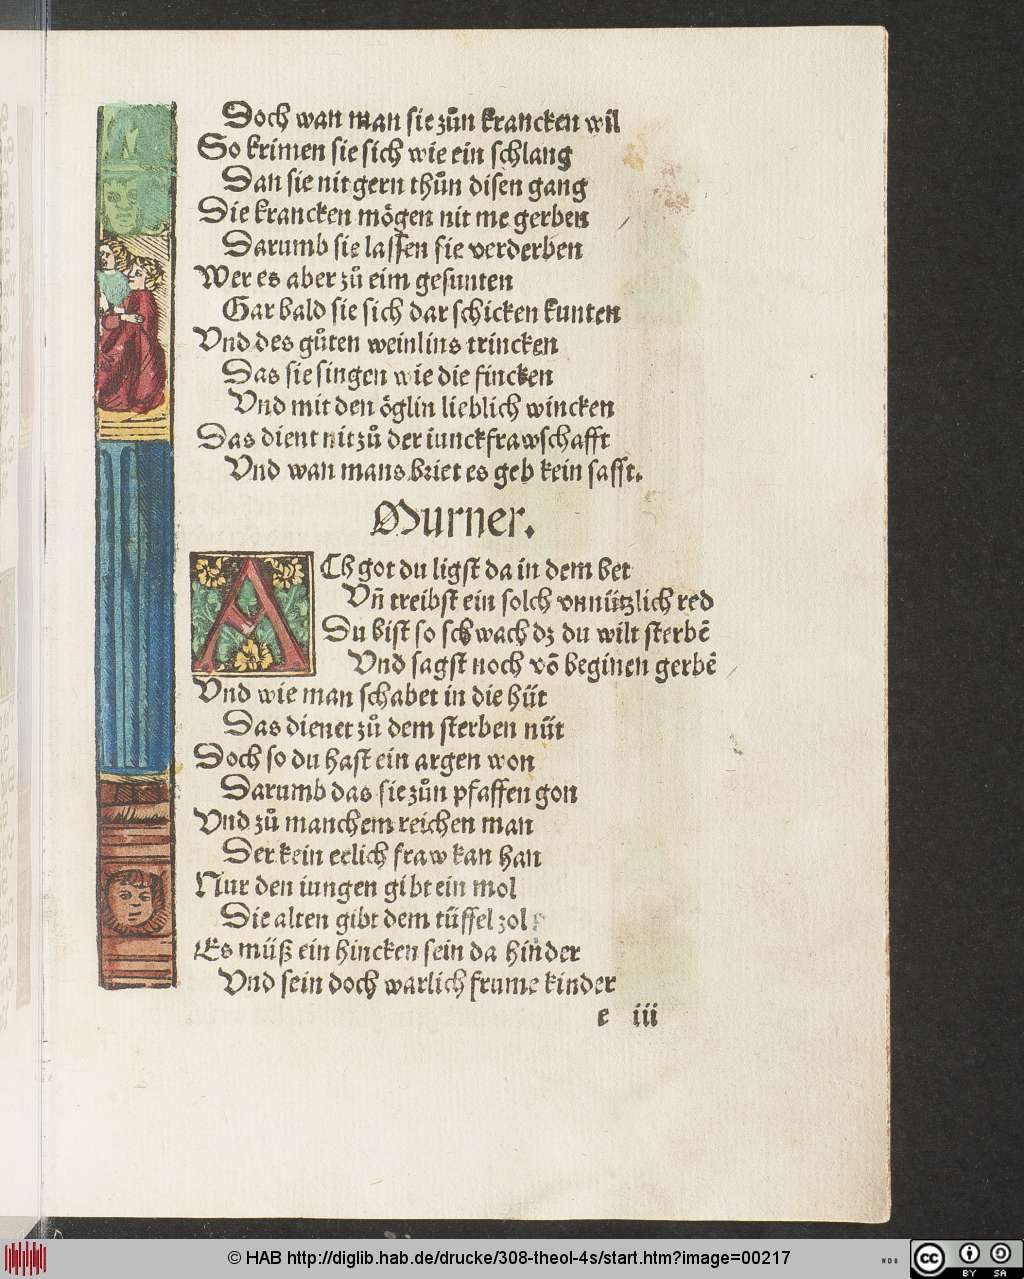 Doch wan man sie zuͦn krancken wil
So krimen sie sich wie ein schlang
Dan sie nit gern thuͦn disen gang
Die krancken moͤgen nit me gerben
Darumb sie lassen sie verderben
Wer es aber zuͦ eim gesunten
Gar bald sie sich dar schicken kunten
Vnd des guͦten weinlins trincken
Das sie singen wie die fincken
Vnd mit den oͤglin lieblich wincken
Das dient nit zuͦ der iunckfrawschafft
Vnd wan mans briet es geb kein safft.
Murner.
ACh got du ligst da in dem bet
Vñ treibst ein solch vnnützlich red
Du bist so schwach dz du wilt sterbē
Vnd sagst noch vō beginen gerbē
Vnd wie man schabet in die hüt
Das dienet zuͦ dem sterben nüt
Doch so du hast ein argen won
Darumb das sie zuͦn pfaffen gon
Vnd zuͦ manchem reichen man
Der kein eelich fraw kan han
Nur den iungen gibt ein mol
Die alten gibt dem tüffel zol
Es müß ein hincken sein da hinder
Vnd sein doch warlich frume kinder
e iii
© HAB http://diglib.hab.de/drucke/308-theol-4s/start.htm?image=00217
WDB
cc BY SA